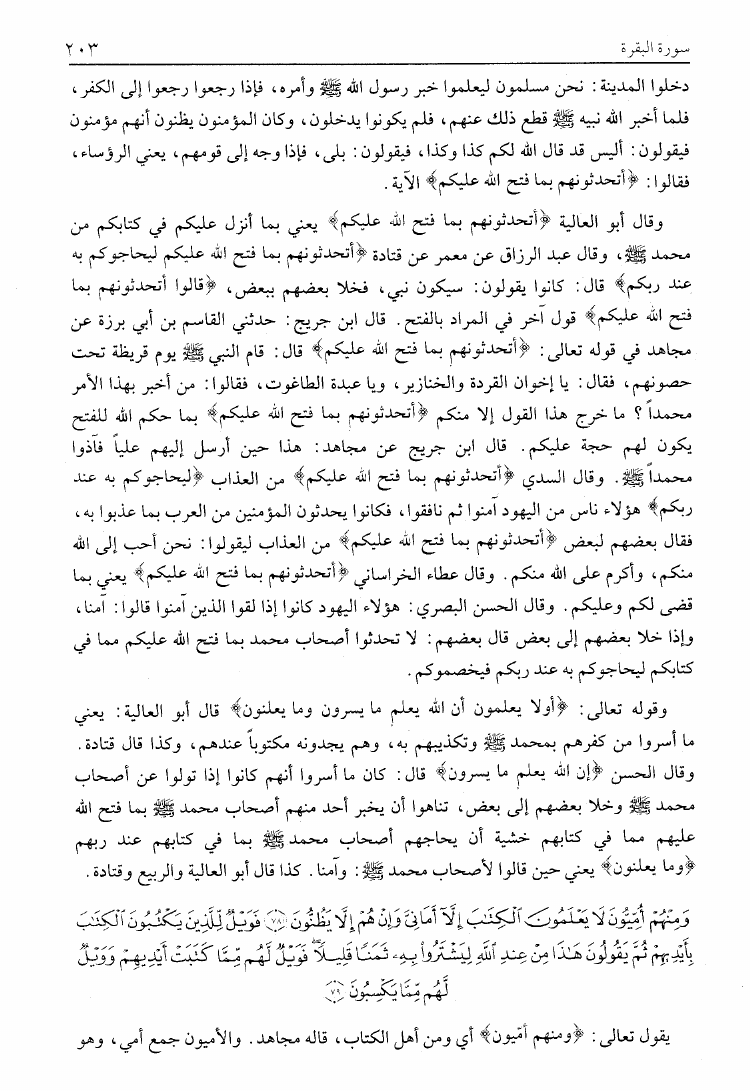 سورة البقرة ٢٠٣
دخلوا المدينة: نحن مسلمون ليعلموا خبر رسول الله ﷺ وأمره، فإذا رجعوا رجعوا إلى الكفر،
فلما أخبر الله نبيه ﷺ قطع ذلك عنهم، فلم يكونوا يدخلون، وكان المؤمنون يظنون أنهم مؤمنون
فيقولون: أليس قد قال الله لكم كذا وكذا، فيقولون: بلى، فإذا وجه إلى قومهم، يعني الرؤساء،
فقالوا: ﴿أتحدثونهم بما فتح الله عليكم﴾ الآية.
وقال أبو العالية ﴿أتحدثونهم بما فتح الله عليكم﴾ يعني بما أنزل عليكم في كتابكم من
محمد ﷺ، وقال عبد الرزاق عن معمر عن قتادة ﴿أتحدثونهم بما فتح الله عليكم ليحاجوكم به
عند ربكم﴾ قال: كانوا يقولون: سيكون نبي، فخلا بعضهم ببعض، ﴿قالوا أتحدثونهم بما
فتح الله عليكم﴾ قول آخر في المراد بالفتح. قال ابن جريج: حدثني القاسم بن أبي برزة عن
مجاهد في قوله تعالى: ﴿أتحدثونهم بما فتح الله عليكم﴾ قال: قام النبي ﷺ يوم قريظة تحت
حصونهم، فقال: يا إخوان القردة والخنازير، ويا عبدة الطاغوت، فقالوا: من أخبر بهذا الأمر
محمداً؟ ما خرج هذا القول إلا منكم ﴿أتحدثونهم بما فتح الله عليكم﴾ بما حكم الله للفتح
يكون لهم حجة عليكم. قال ابن جريج عن مجاهد: هذا حين أرسل إليهم علياً فآذوا
محمداً ﷺ. وقال السدي ﴿أتحدثونهم بما فتح الله عليكم﴾ من العذاب ﴿ليحاجوكم به عند
ربكم﴾ هؤلاء ناس من اليهود آمنوا ثم نافقوا، فكانوا يحدثون المؤمنين من العرب بما عذبوا به،
فقال بعضهم لبعض ﴿أتحدثونهم بما فتح الله عليكم﴾ من العذاب ليقولوا: نحن أحب إلى الله
منكم، وأكرم على الله منكم. وقال عطاء الخراساني ﴿أتحدثونهم بما فتح الله عليكم﴾ يعني بما
قضى لكم وعليكم. وقال الحسن البصري: هؤلاء اليهود كانوا إذا لقوا الذين آمنوا قالوا: آمنا،
وإذا خلا بعضهم إلى بعض قال بعضهم: لا تحدثوا أصحاب محمد بما فتح الله عليكم مما في
كتابكم ليحاجوكم به عند ربكم فيخصموكم.
وقوله تعالى: ﴿أولا يعلمون أن الله يعلم ما يسرون وما يعلنون﴾ قال أبو العالية: يعني
ما أسروا من كفرهم بمحمد ﷺ وتكذيبهم به، وهم يجدونه مكتوباً عندهم، وكذا قال قتادة.
وقال الحسن ﴿إن الله يعلم ما يسرون﴾ قال: كان ما أسروا أنهم كانوا إذا تولوا عن أصحاب
محمد ﷺ وخلا بعضهم إلى بعض، تناهوا أن يخبر أحد منهم أصحاب محمد ﷺ بما فتح الله
عليهم مما في كتابهم خشية أن يحاجهم أصحاب محمد ﷺ بما في كتابهم عند ربهم
﴿وما يعلنون﴾ يعني حين قالوا لأصحاب محمد ﷺ: وآمنا. كذا قال أبو العالية والربيع وقتادة.
وَمِنْهُمْ أُمِّيُّونَ لَا يَعْلَمُونَ ٱلْكِتَٰبَ إِلَّآ أَمَانِىَّ وَإِنْ هُمْ إِلَّا يَظُنُّونَ ٧٨ فَوَيْلٌ لِّلَّذِينَ يَكْتُبُونَ ٱلْكِتَٰبَ
بِأَيْدِيهِمْ ثُمَّ يَقُولُونَ هَٰذَا مِنْ عِندِ ٱللَّهِ لِيَشْتَرُوا۟ بِهِۦ ثَمَنًا قَلِيلًا ۖ فَوَيْلٌ لَّهُم مِّمَّا كَتَبَتْ أَيْدِيهِمْ وَوَيْلٌ
لَّهُم مِّمَّا يَكْسِبُونَ ٧٩
يقول تعالى: ﴿ومنهم أمّيون﴾ أي ومن أهل الكتاب، قاله مجاهد. والأميون جمع أمي، وهو